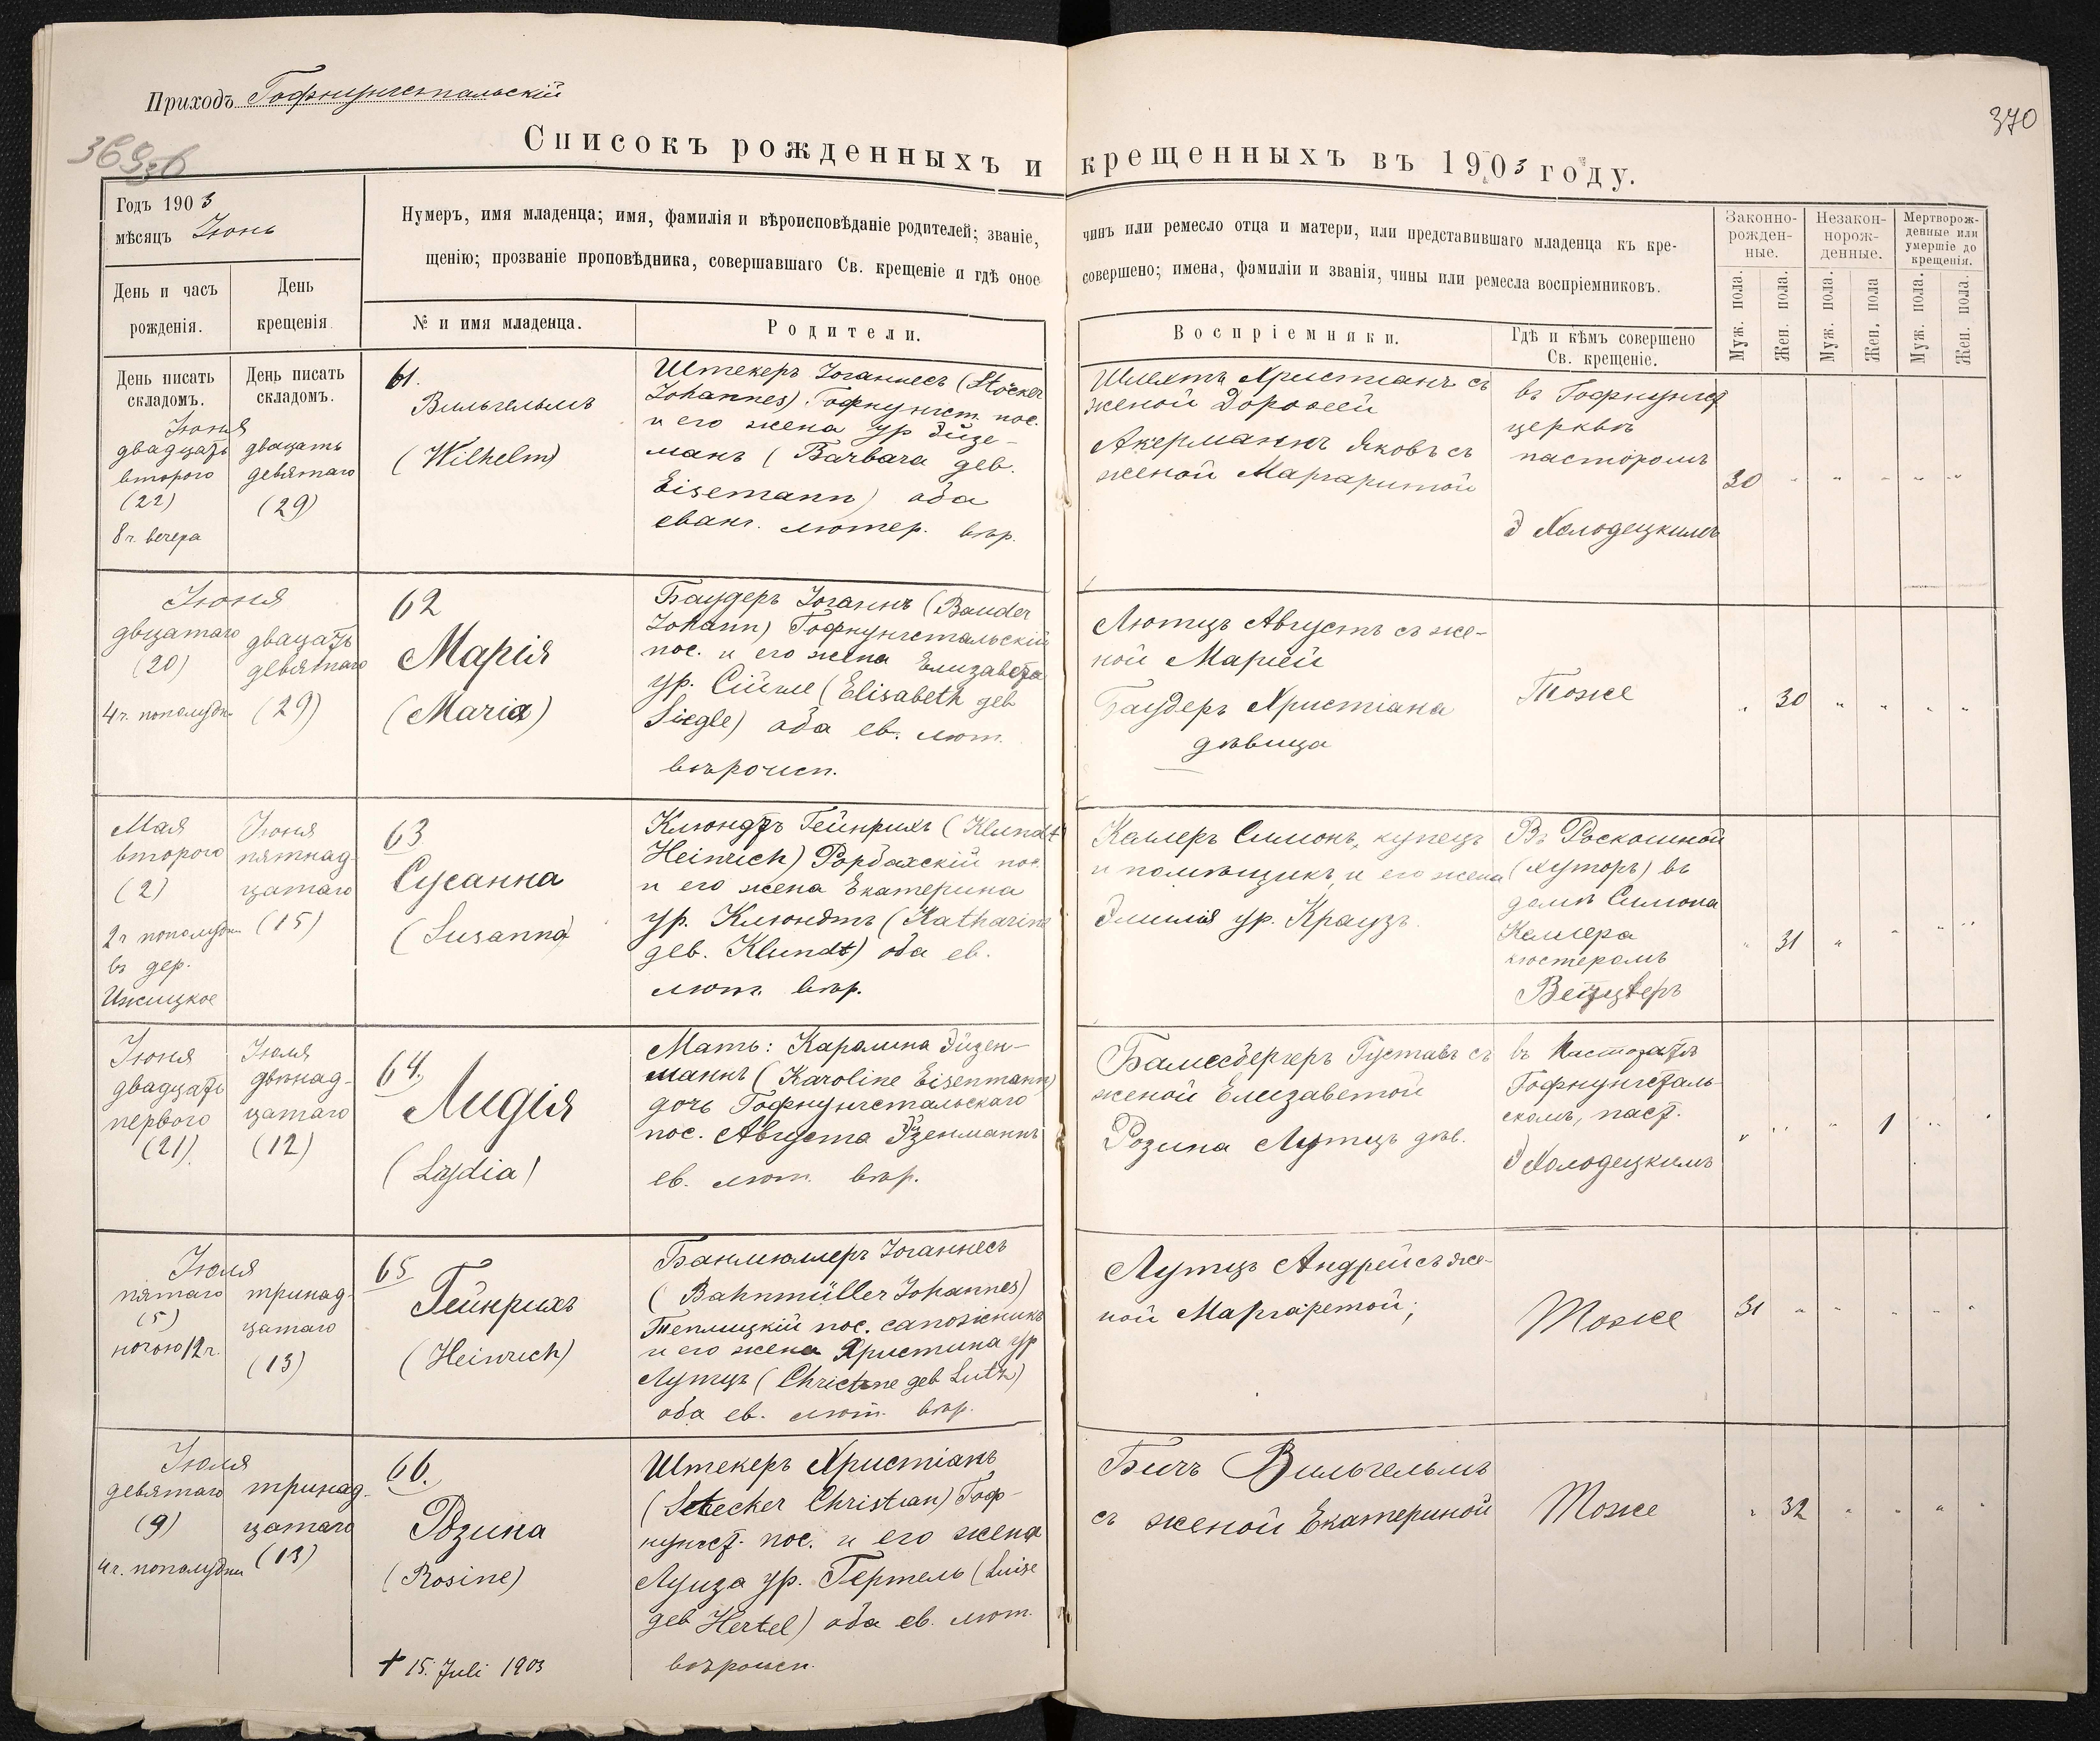 Приходъ Гофнунгстальскій
370
Списокъ рожденныхъ и крещенныхъ въ 1903 году.
Годъ 1903
мѣсяцъ Іюнь
Нумеръ, имя младенца; имя, фамилія и вѣроисповѣданіе родителей; званіе, чинъ или ремесло отца и матери, или представившаго младенца къ кре-
щенію; прозваніе проповѣдника, совершавшаго Св. крещеніе и гдѣ оное совершено; имена, фамиліи и званія, чины или ремесла воспріемниковъ.
День и часъ
рожденія.
День
крещенія.
№ и имя младенца.
Родители.
Воспріемники.
Гдѣ и кѣмъ совершено
Св. крещеніе.
Законно-
рожден-
ные.
Незакон-
норож-
денные.
Мертворож-
денные или
умершіе до
крещенія.
Муж. пола.
Жен. пола.
Муж. пола.
Жен. пола
Муж. пола.
Жен. пола.
День писать
складомъ.
День писать
складомъ.
Іюня
двадцать
второго
(22)
8 ч. вечера
двацать
девятаго
(29)
61.
Вильгельмъ
(Wilhelm)
Штекеръ Іоганнесъ (Stöcker
Johannes) Гофнунгст. пос.
и его жена ур Эйзе-
манъ (Barbara geb.
Eisemann) оба
еванг. лютер. вѣр.
Шлехтъ Христіанъ съ
женой Доротеей
Акерманнъ Яковъ съ
женой Маргаритой
въ Гофнунгст
церкви
пасторомъ
Э Холодецкимъ
30
Іюня
двцатаго
(20)
4 ч. пополудн.
двацать
девятаго
(29)
62
Марія
(Maria)
Баудеръ Іоганнъ (Bauder
Johann) Гофнунгстальскій
пос. и его жена Елизавета
ур. Сійгле (Elisabeth geb
Siegle) оба ев. лют.
вѣроисп.
Лютцъ Августъ съ же-
ной Маріей
Баудеръ Христіана
дѣвица
Тоже
30
Мая
второго
(2)
2 ч пополудни
въ дер.
Іюня
пятнад-
цатаго
(15)
63
Сусанна
(Susanna)
Клюндтъ Гейнрихъ (Klundt
Heinrich) Рорбахскій пос.
и его жена Екатерина
ур. Клюндтъ (Katharina
geb. Klundt) оба ев.
лют. вѣр.
Келлеръ Симонъ, купецъ
и помѣщикъ, и его жена
Эмилія ур. Краузъ.
Въ Роскошной
(хуторъ) въ
домѣ Симона
Келлера
кюстеромъ
31
Іюня
двадцать
первого
(21).
Іюля
двѣнад-
цатаго
(12)
64.
Лидія
(Lydia)
Мать: Каролина Эйзен-
маннъ (Karoline Eisenmann)
дочь Гофнунгстальскаго
пос. Августа Эйзенманнъ
ев. лют. вѣр.
Балмсбергеръ Густавъ съ
женой Елизаветой
Розина Лутцъ дѣв.
въ Пасторатѣ
Гофнунгсталь-
скомъ, паст.
Э Холодецкимъ
1
Іюля
пятаго
(5)
ночью 12 ч.
тринад-
цатаго
(13)
65
Гейнрихъ
(Heinrich)
Банмюллеръ Іоганнесъ
(Bahnmüller Johannes)
Теплицкій пос. сапожникъ
и его жена Христина ур
Лутцъ (Christine geb Lutz)
оба ев. лют. вѣр.
Лутцъ Андрей съ же-
ной Маргаретой;
Тоже
31
Іюля
девятаго
(9)
4 ч. пополудни
тринад-
цатаго
(13)
66.
Розина
(Rosine)
† 15. Juli 1903
Штекеръ Христіанъ
(Stecher Christian) Гоф-
нунгст. пос. и его жена
Луиза ур. Гертель (Luise
geb Hertel) оба ев. лют.
вѣроисп.
Бичъ Вильгельмъ
съ женой Екатериной
Тоже
32